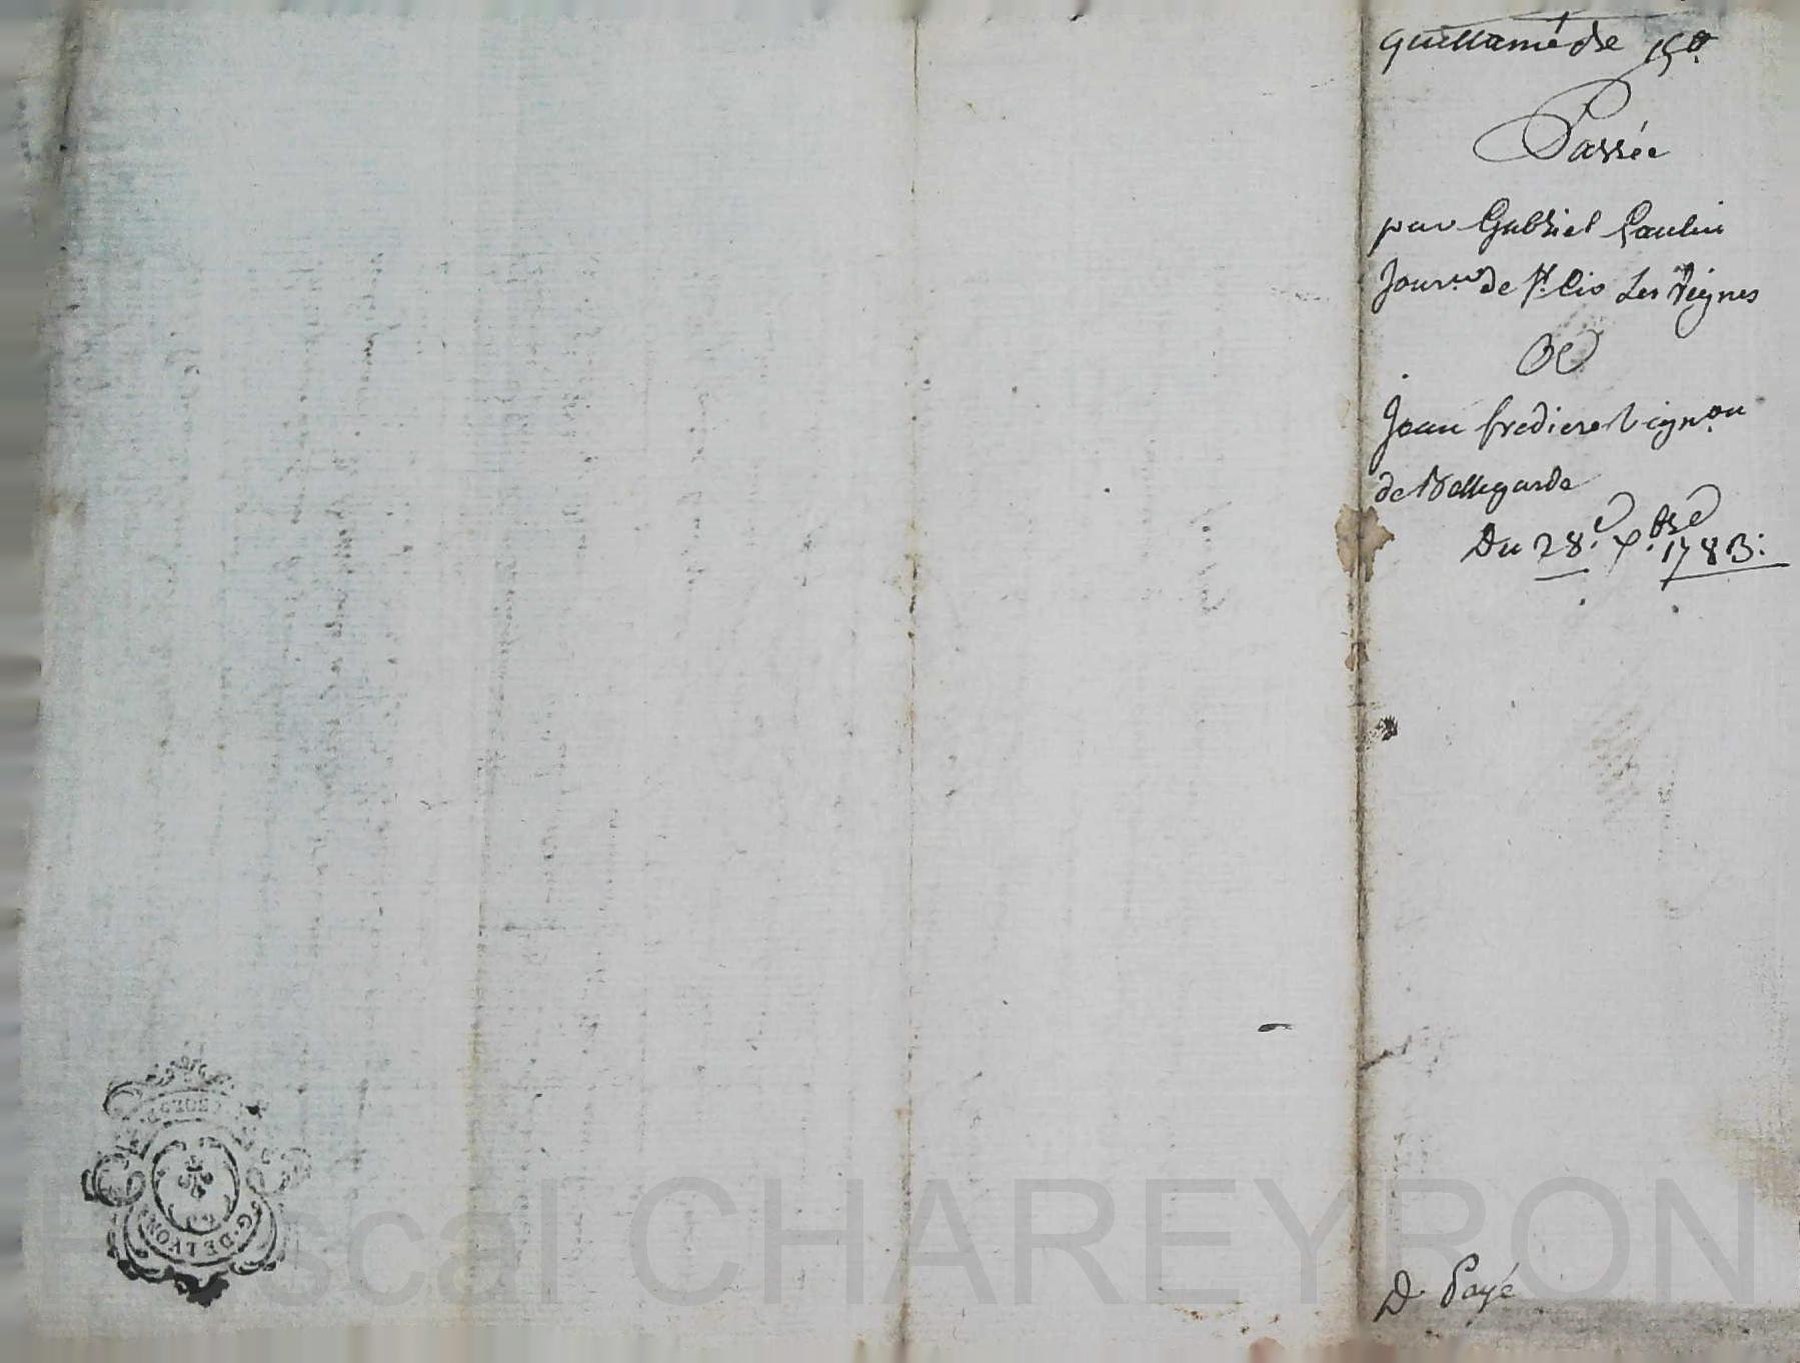 quittance de 15#
Passée
par Gabriel Paulin
Jour.er de St. Cir Les Vignes
A
Jean frediere Vign.on
de Bellegarde
Du 28.e X.bre 1783:
D. Payé
G. DE LYON
Pascal CHAREYRON